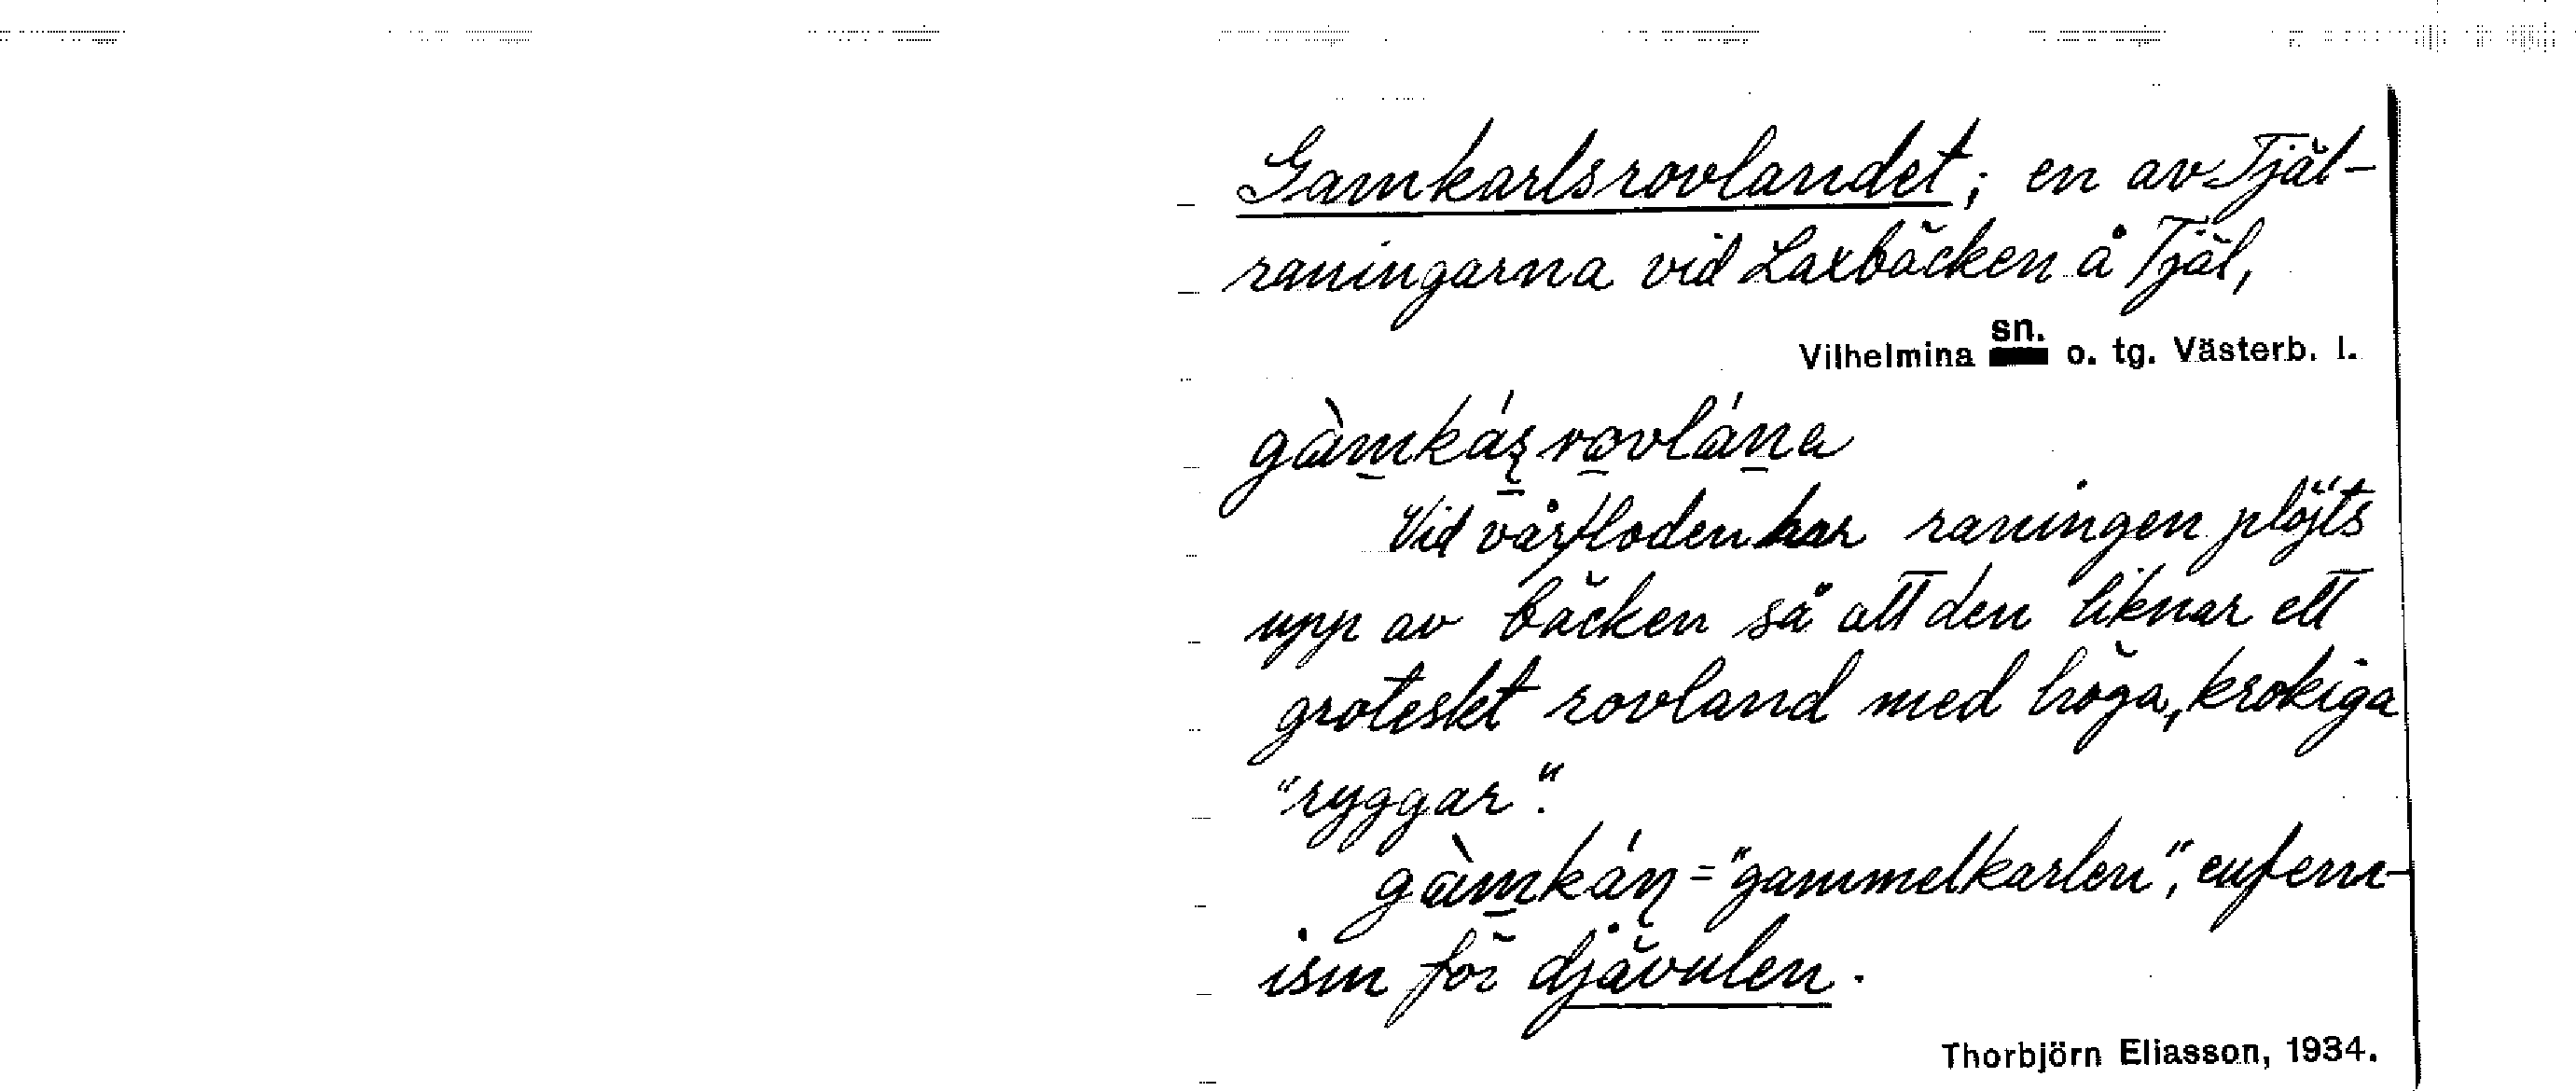 Gamkarlsrovlandet; en av Tjäl-
raningarna vid Laxbäcken å Tjäl,
sn.
Vilhelmina o. tg. Västerb. l.
gàm̱káʂ̱ ro̱vláṉa
Vid vårfloden har raningen plöjts
upp av bäcken så att den liknar ett
groteskt rovland med höga, krokiga
"ryggar".
gàm̱káɳ = "gammelkarlen", eufem-
ism för djävulen.
Thorbjörn Eliasson, 1934.